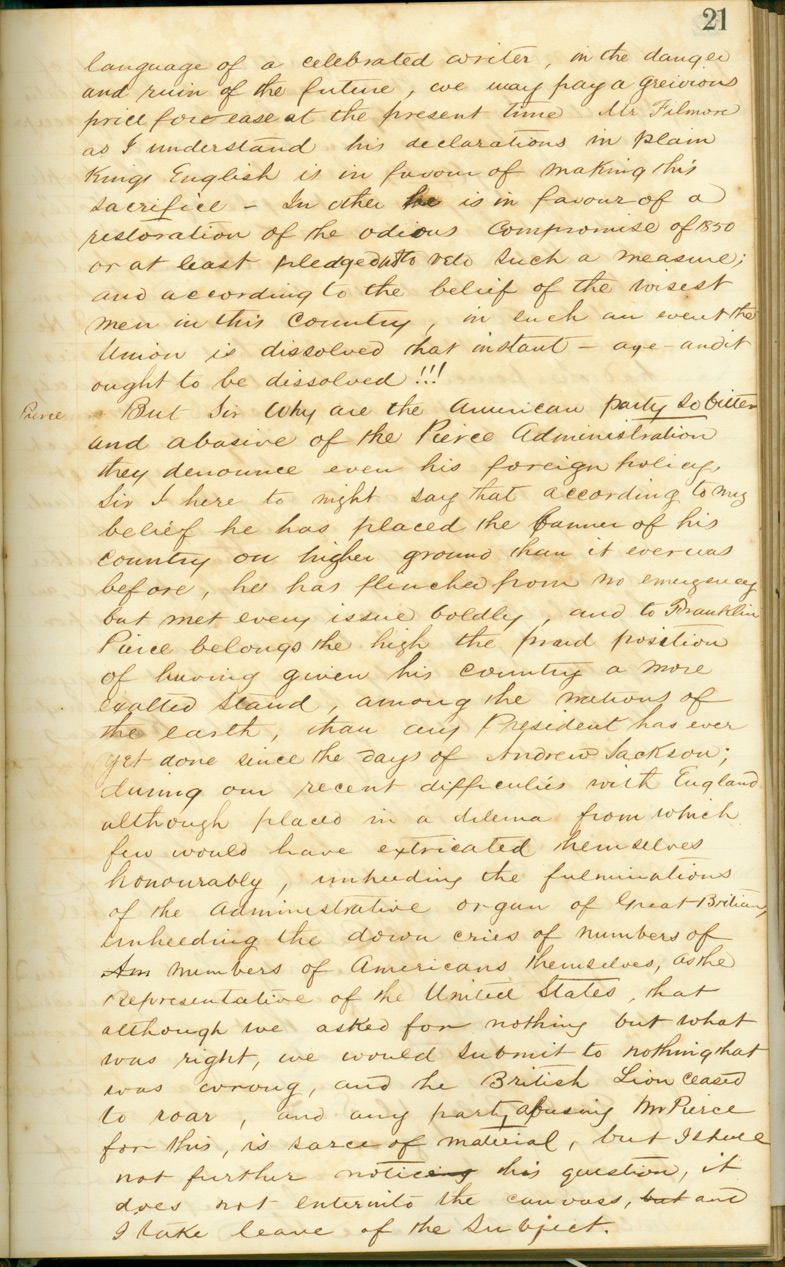 21
language of a celebrated writer, in the danger
and ruin of the future, we may pay a greivious
price for ease at the present time Mr Filmore
as I understand his declarations in plain
Kings English is in favour of making this
sacrifice - In other he is in favour of a
restoration of the odious Compromise of 1850
or at least pledged not to veto such a measure;
and according to the belief of the wisest
men in this Country, in such an event the
Union is dissolved that instant - aye - and it
ought to be dissolved!!!
Pierce
But Sir Why are the American party so bitter
and abusive of the Pierce Administration
they denounce even his foreign policy,
Sir I here to night say that according to my
belief he has placed the banner of his
country on higher ground than it ever was
before, he has flinched from no emergency
but met every issue boldly, and to Franklin
Pierce belongs the high the proud position
of having given his country a more
exalted stand, among the nations of
the earth, than any President has ever
yet done since the days of Andrew Jackson;
during our recent difficulties with England
although placed in a dilema from which
few would have extricated themselves
honourably, unheeding the fulminations
of the Administrative organ of Great Britian,
unheeding the down cries of numbers of
Am numbers of Americans themselves, as the
Representative of the United States, that
although we asked for nothing but what
was right, we would submit to nothing that
was wrong, and the British Lion ceased
to roar, and any party abusing Mr Pierce
for this, is sarce of material, but I shall
not further noticeing this question, it
does not enter into the canvass, but and
I take leave of the Subject.